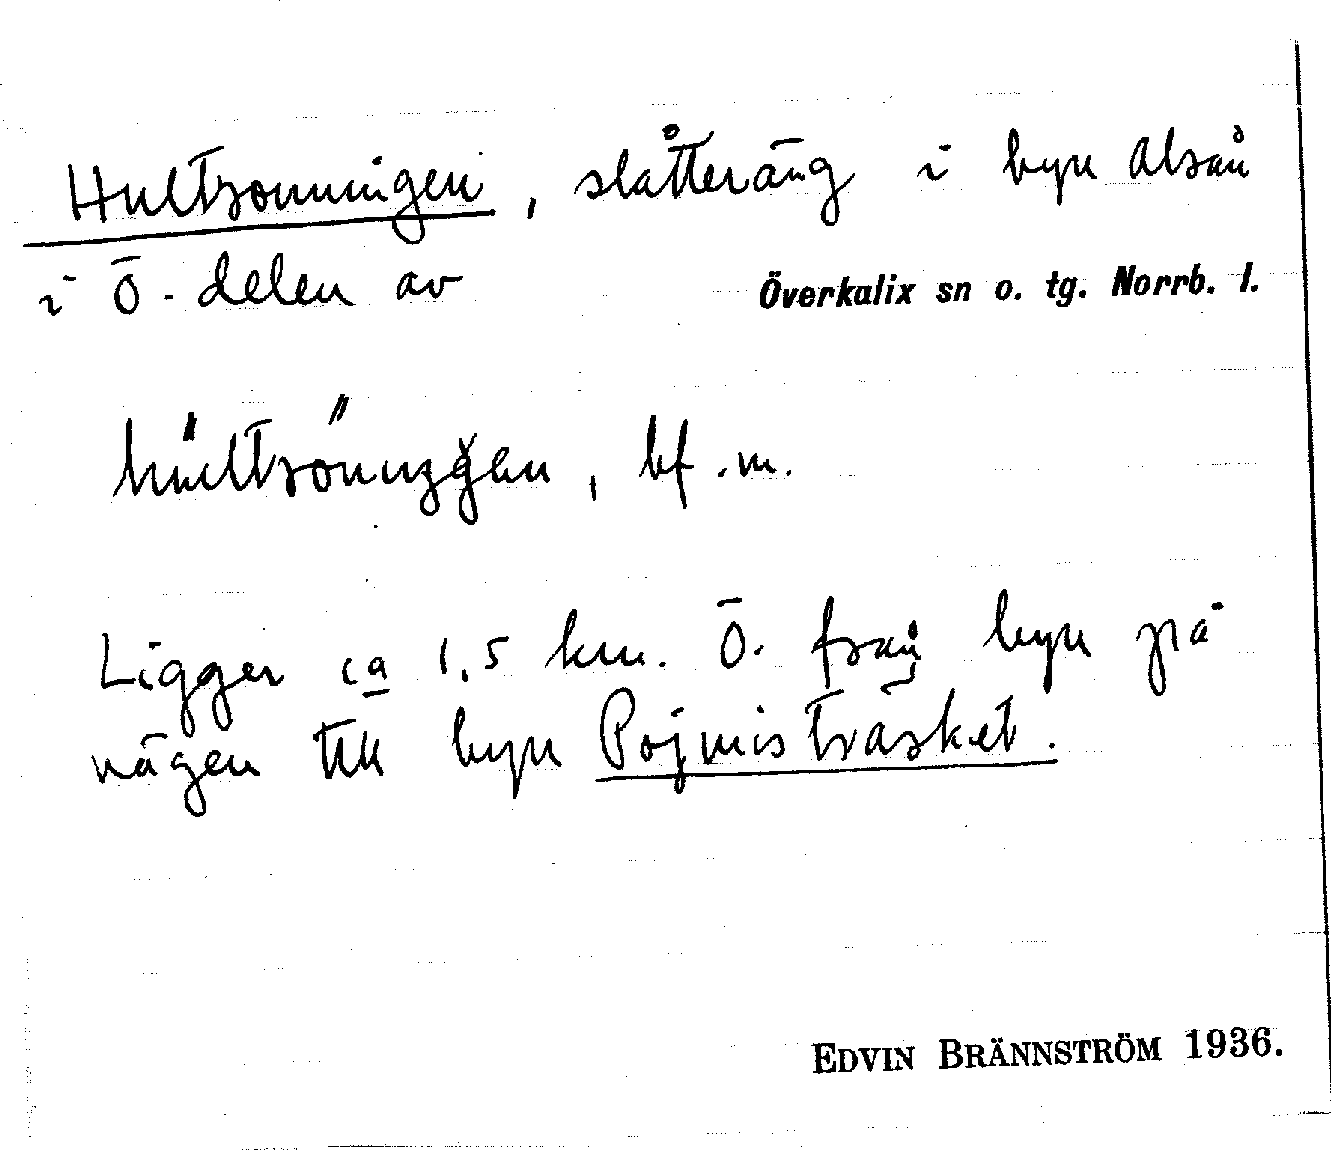 Hultronningen, slåtteräng i byn Alsån
i Ö-delen av Överkalix sn o. tg. Norrb. l.
bf. m.
Ligger ca 1,5 km. Ö. från byn på
vägen till byn Pojmisträsket.
EDVIN BRÄNNSTRÖM 1936.